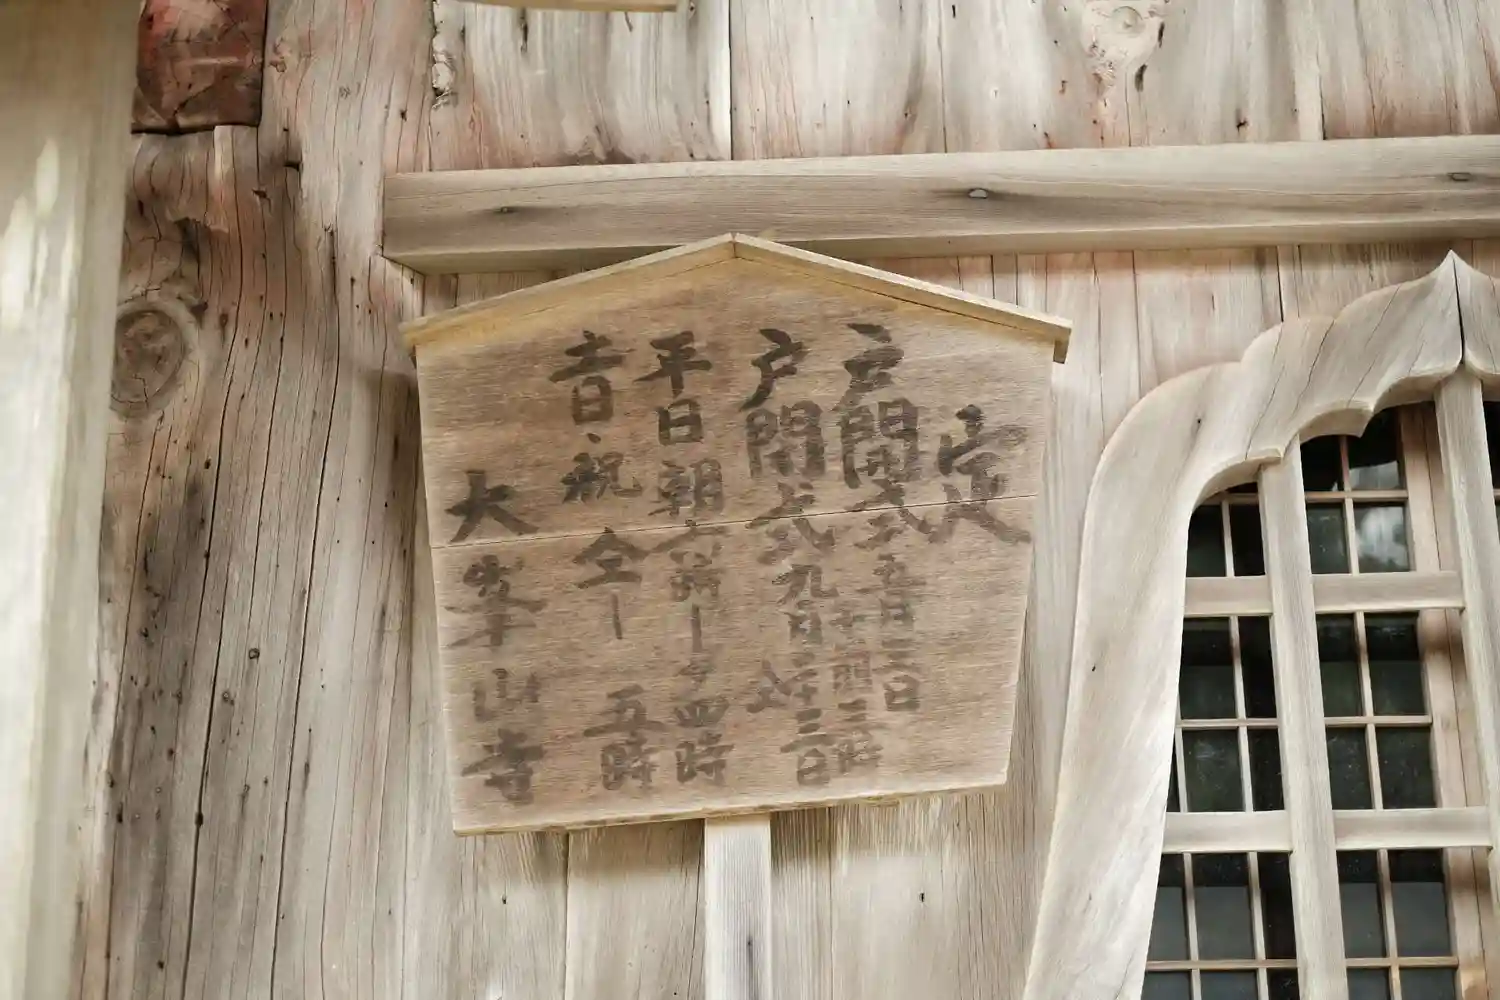 定
戸開式 五月三日
午前三時
戸閉式 九月廿三日
平日 朝六時ー夕四時
土日、祝 全ー 五時
大峯山寺